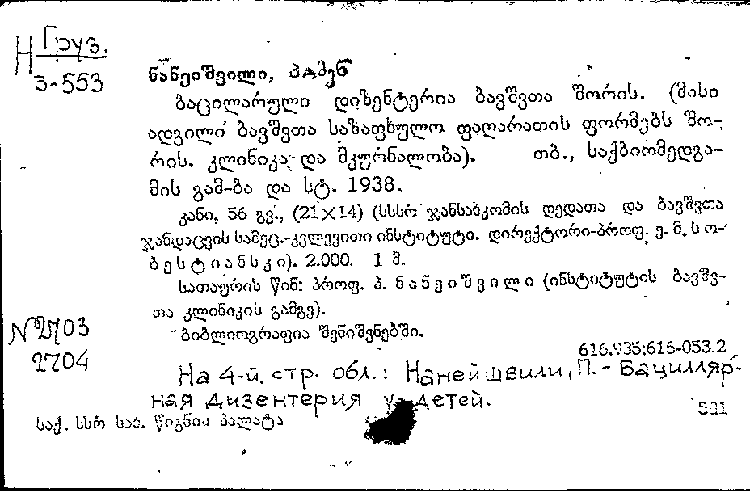 Н Груз.
3-553
ნანეიშვილი, პაპენ
ბაცილარული დიზენტერია ბავშვთა შორის. (მისი
ადგილი ბავშვთა საზაფხულო ფაღარათის ფორმებს შო-
რის. კლინიკა და მკურნალობა). თბ., საქბიომედგა-
მის გამ-ბა და სტ. 1938.
კანი, 56 გვ., (21×14) (სსსრ ჯანსახკომის დედათა და ბავშვთა
ჯანდაცვის სამეც.-კვლევითი ინსტიტუტი. დირექტორი-პროფ. ე. მ. სო-
ბესტიანსკი). 2.000. 1 მ.
სათაურის წინ: პროფ. პ. ნანეიშვილი (ინსტიტუტის ბავშვ-
თა კლინიკის გამგე).
ბიბლიოგრაფია შენიშვნებში.
N 2703
2704
616.935:616-053.2
На 4-й. стр. обл.: Нанейшвили, П. - Бацилляр-
ная дизентерия у детей.
531
საქ. სსრ სახ. წიგნის პალატა